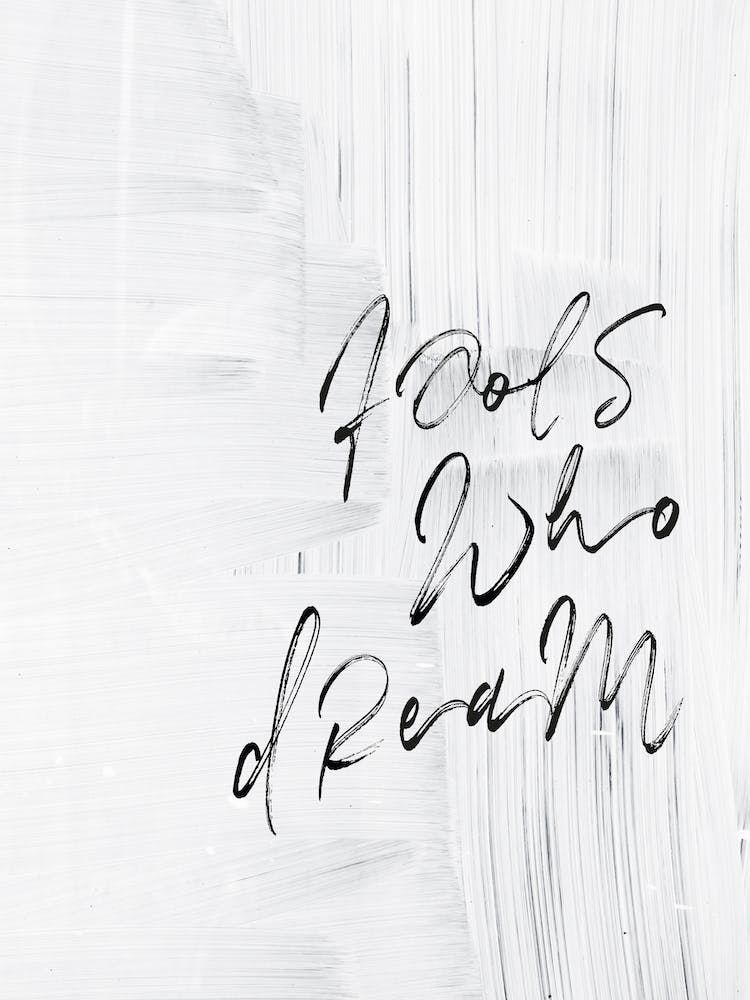 fOolS
Who
dReaM